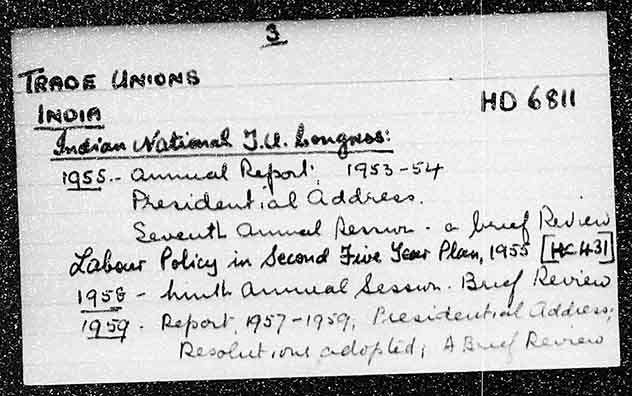 3
TRADE UNIONS
INDIA
HD 6811
Indian National T.U. Congress:
1955.- Annual Report; 1953-54
Presidential Address.
Seventh Annual Session - a brief Review
Labour Policy in Second Five Year Plan, 1955 [HC 431]
1958 - Ninth Annual Session. Brief Review
1959. Report, 1957-1959; Presidential Address;
Resolutions adopted; A Brief Review